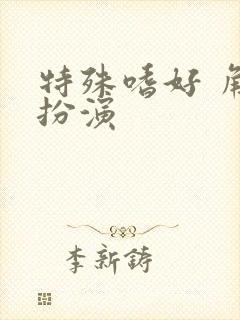 特殊嗜好 角
扮演
李新鋳